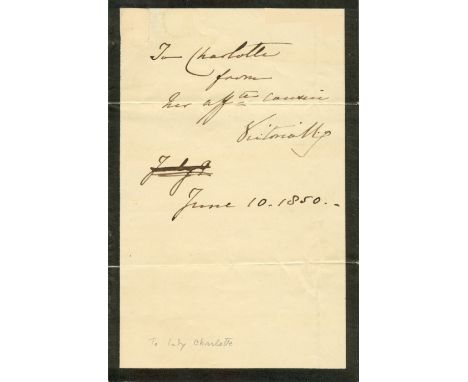 To Charlotte
from
her aff te cousin
Victoria R
July 9
June 10. 1850.-
To Lady Charlotte